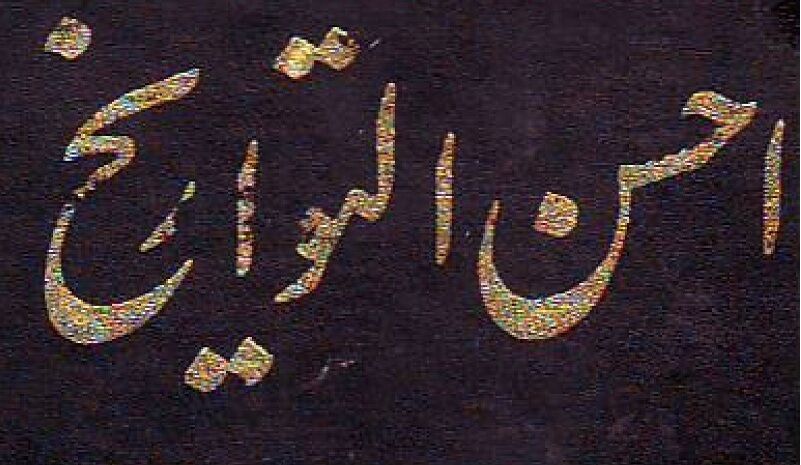 احسن التواریخ